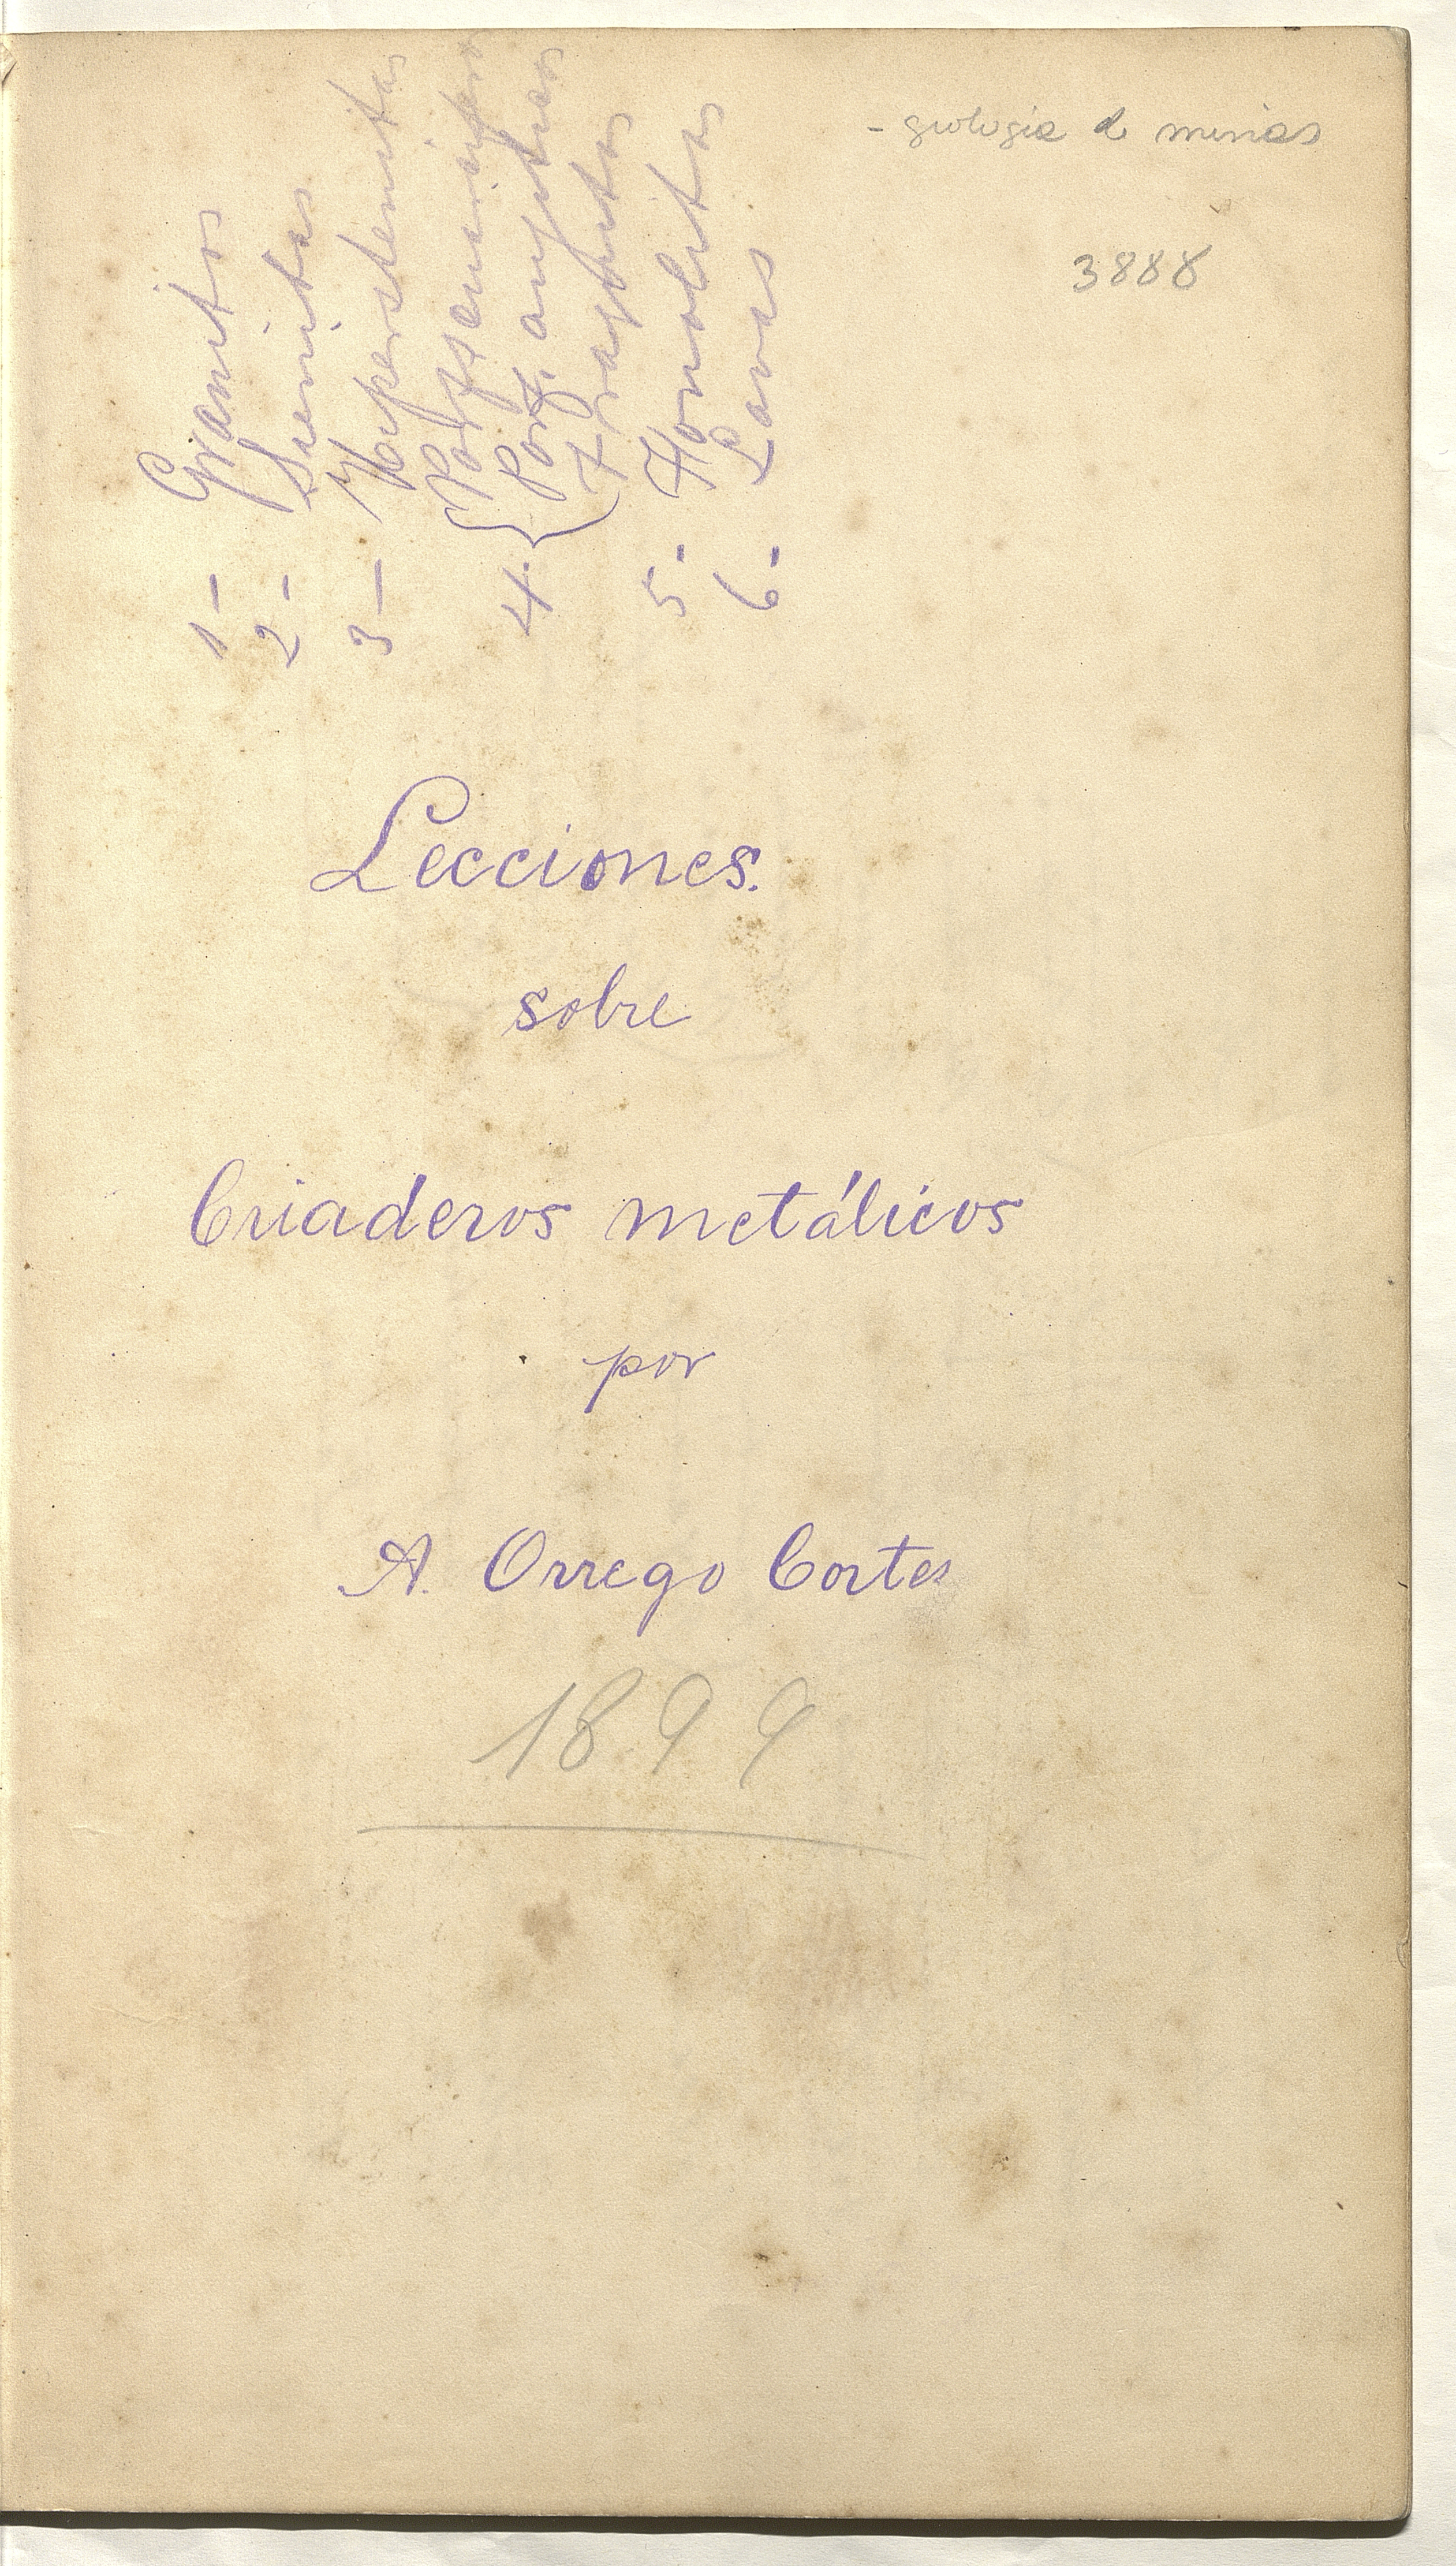 - geologia de minas
3888
1 - Granitos
2 - Sienitas
3 - Hiperstenitas
4. { Porf.
Porf. augiticos
Traquitas
5. Fonolitas
6. Lavas
Lecciones.
sobre
Criaderos metálicos
por
A. Orrego Cortes
1899